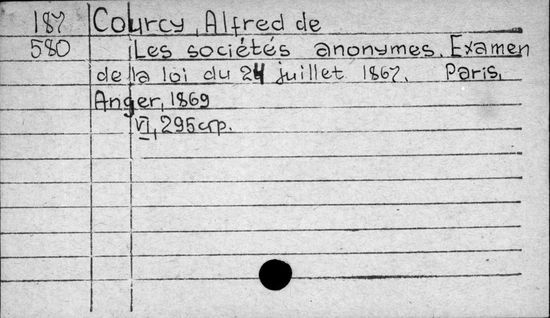 187 Courcy, Alfred de
580 Les sociétés anonymes. Examen
de la loi du 24 juillet 1867. Paris,
Anger, 1869
VI, 295 стр.